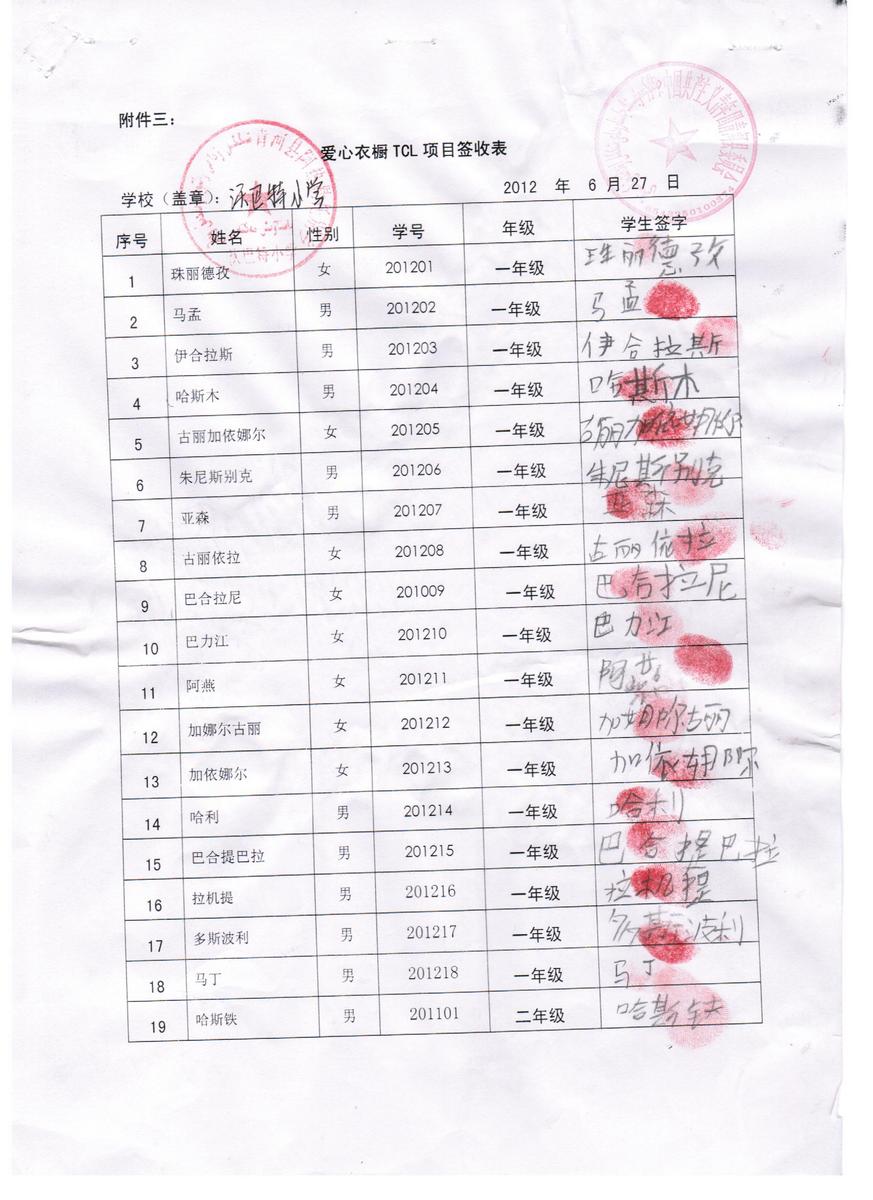 附件三：
爱心衣橱 TCL 项目签收表
学校（盖章）：沃巴特小学 2012 年 6 月 27 日
序号 姓名 性别 学号 年级 学生签字
1 珠丽德孜 女 201201 一年级 珠丽德孜
2 马孟 男 201202 一年级 马孟
3 伊合拉斯 男 201203 一年级 伊合拉斯
4 哈斯木 男 201204 一年级 哈斯木
5 古丽加依娜尔 女 201205 一年级
6 朱尼斯别克 男 201206 一年级 朱尼斯别克
7 亚森 男 201207 一年级 亚森
8 古丽依拉 女 201208 一年级 古丽依拉
9 巴合拉尼 女 201009 一年级 巴合拉尼
10 巴力江 女 201210 一年级 巴力江
11 阿燕 女 201211 一年级 阿燕
12 加娜尔古丽 女 201212 一年级 加娜尔古丽
13 加依娜尔 女 201213 一年级 加依娜尔
14 哈利 男 201214 一年级 哈利
15 巴合提巴拉 男 201215 一年级 巴合提巴拉
16 拉机提 男 201216 一年级 拉机提
17 多斯波利 男 201217 一年级 多斯波利
18 马丁 男 201218 一年级 马丁
19 哈斯铁 男 201101 二年级 哈斯铁